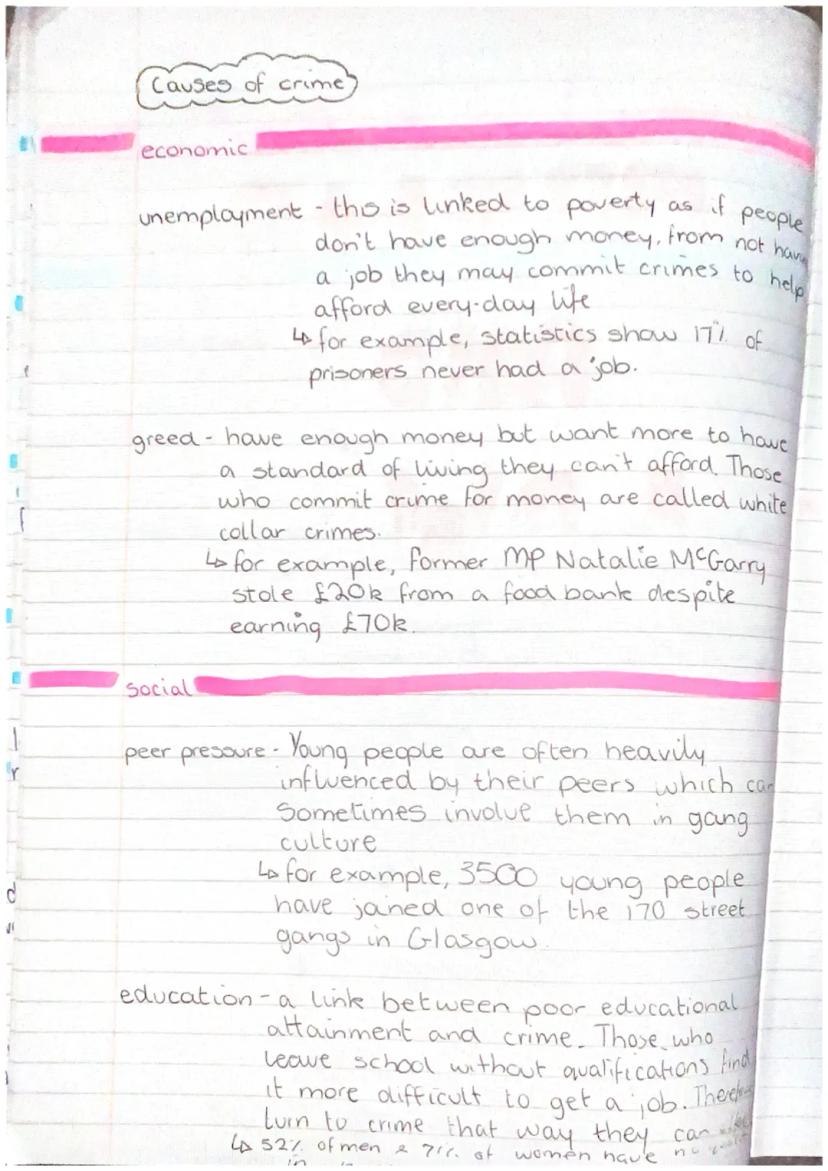 Causes of crime
economic
unemployment - this is linked to poverty as if people
don't have enough money, from not
a job they may commit crimes to help
afford every-day life
↳ for example, statistics show 17% of
prisoners never had a job.
greed - have enough money but want more to have
a standard of living they can't afford. Those
who commit crime for money are called white
collar crimes.
↳ for example, former MP Natalie McGarry
stole £20k from a food bank despite
earning £70k.
social
peer pressure - Young people are often heavily
influenced by their peers which can
sometimes involve them in gang
culture
↳ for example, 3500 young people
have joined one of the 170 street
gangs in Glasgow.
education - a link between poor educational
attainment and crime. Those who
leave school without qualifications find
it more difficult to get a job.
turn to crime that way they can
↳ 52% of men & 71% of women have